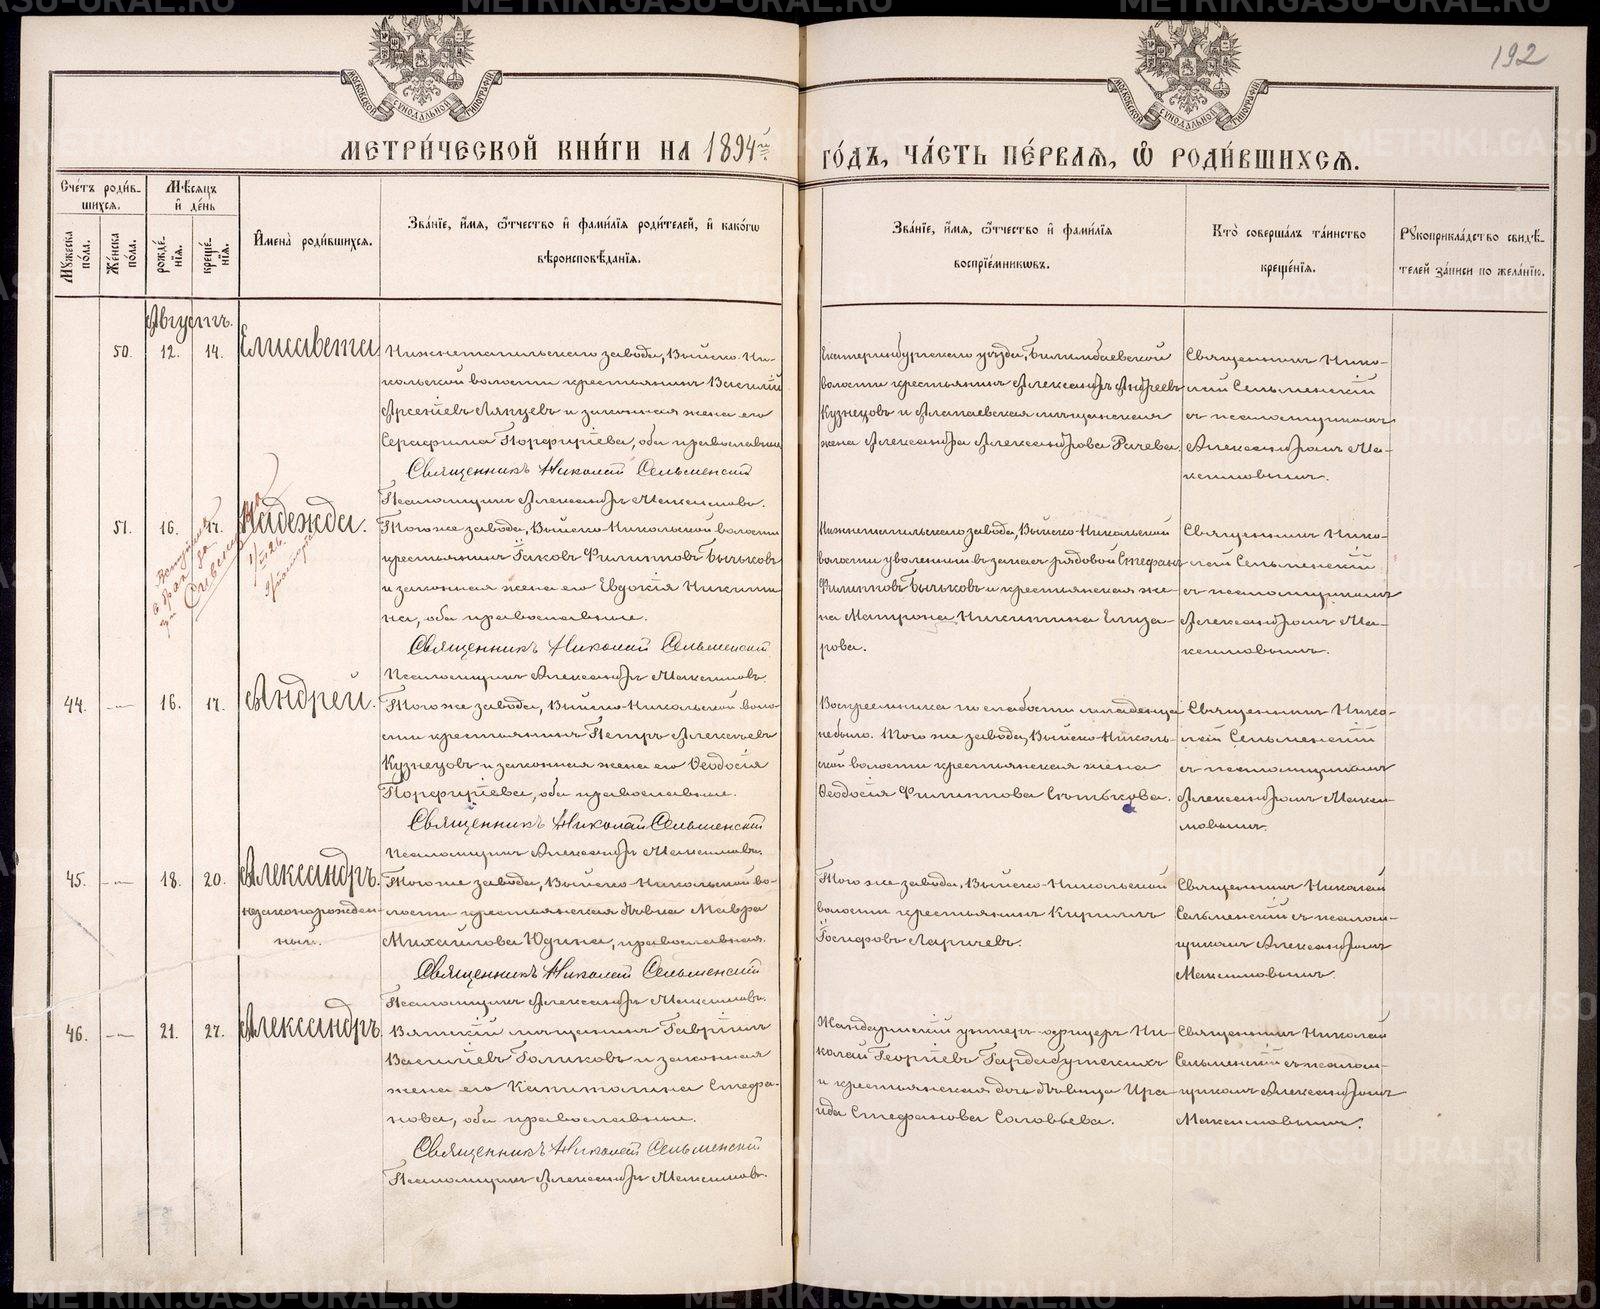 192
МОСКОВСКОЙ СѴНОДАЛЬНОЙ ТИПОГРАФІИ
МОСКОВСКОЙ СѴНОДАЛЬНОЙ ТИПОГРАФІИ
МЕТРИ́ЧЕСКОЙ КНИ́ГИ НА 1894й
ГО́ДЪ, ЧА́СТЬ ПЕ́РВАѦ, Ѽ РОДИ́ВШИХСѦ.
Сче́тъ роди́в-
шихсѧ.
Мѣ́сѧцъ
и҆ де́нь
Мꙋжеска по́ла.
Же́нска по́ла.
рожде́-
нїѧ.
креще́-
нїѧ.
И҆мена̀ роди́вшихсѧ.
Зва́нїе, и҆́мѧ, ѻ҆́тчество и҆ фами́лїѧ роди́телей, и҆ како́гѡ
вѣроисповѣ́данїѧ.
Зва́нїе, и҆́мѧ, ѻ҆́тчество и҆ фами́лїѧ
воспрїе́мникѡвъ.
Кто̀ соверша́лъ та́инство
креще́нїѧ.
Рꙋкоприкла́дство свидѣ́-
телей за́писи по жела́нїю.
Августъ.
50. 12. 14. Елисавета
Нижнетагильскаго завода, Выйско-Ни-
кольской волости крестьянинъ Василій
Арсеніевъ Ляпцевъ и законная жена его
Серафима Порфиріева, оба православные
Священникъ Николай Сельменскій
Псаломщикъ Александръ Максимовъ.
Екатеринбургскаго уѣзда, Билимбаевской
волости крестьянинъ Александръ Андреевъ
Кузнецовъ и Алапаевская мѣщанская
жена Александра Александрова Рачева.
Священникъ Нико-
лай Сельменскій
съ псаломщикомъ
Александромъ Ма-
ксимовымъ.
51. 16. 17. Надежда.
Вступила
в брак за
Того же завода, Выйско-Никольской волости
крестьянинъ Іаковъ Филипповъ Бычковъ
и законная жена его Евдокія Никити-
на, оба православные.
Священникъ Николай Сельменскій
Псаломщикъ Александръ Максимовъ.
Нижнетагильскаго завода, Выйско-Никольской
волости уволенный въ запасъ рядовой Стефанъ
Филипповъ Бычковъ и крестьянская же-
на Матрона Никитина Елиза-
рова.
Священникъ Нико-
лай Сельменскій
съ псаломщикомъ
Александромъ Ма-
ксимовымъ.
44. -- 16. 17. Андрей.
Того же завода, Выйско-Никольской воло-
сти крестьянинъ Петръ Алексѣевъ
Кузнецовъ и законная жена его Ѳеодосія
Порфиріева, оба православные.
Священникъ Николай Сельменскій
Псаломщикъ Александръ Максимовъ.
Воспреемника по слабости младенца
небыло. Того же завода, Выйско-Николь-
ской волости крестьянская жена
Ѳеодосія Филиппова
Священникъ Нико-
лай Сельменскій
съ псаломщикомъ
Александромъ Макси-
мовымъ.
45. -- 18. 20. Александръ.
незаконорожден-
ный.
Того же завода, Выйско-Никольской во-
лости крестьянская дѣвица Мавра
Михайлова Юдина, православная.
Священникъ Николай Сельменскій
Псаломщикъ Александръ Максимовъ.
Того же завода, Выйско-Никольской
волости крестьянинъ Кириллъ
Іосифовъ Ларичевъ.
Священникъ Николай
Сельменскій съ псалом-
щикомъ Александромъ
Максимовымъ.
46. -- 21. 27. Александръ.
Вятскій мѣщанинъ Гавріилъ
Василіевъ Голиковъ и законная
жена его Капитолина Стефа-
нова, оба православные.
Священникъ Николай Сельменскій
Псаломщикъ Александръ Максимовъ.
Жандармскій унтеръ-офицеръ Ни-
колай Георгіевъ
и крестьянская дочь дѣвица Ира-
ида Стефанова Соловьева.
Священникъ Николай
Сельменскій съ псалом-
щикомъ Александромъ
Максимовымъ.
METRIKI.GASO-URAL.RU